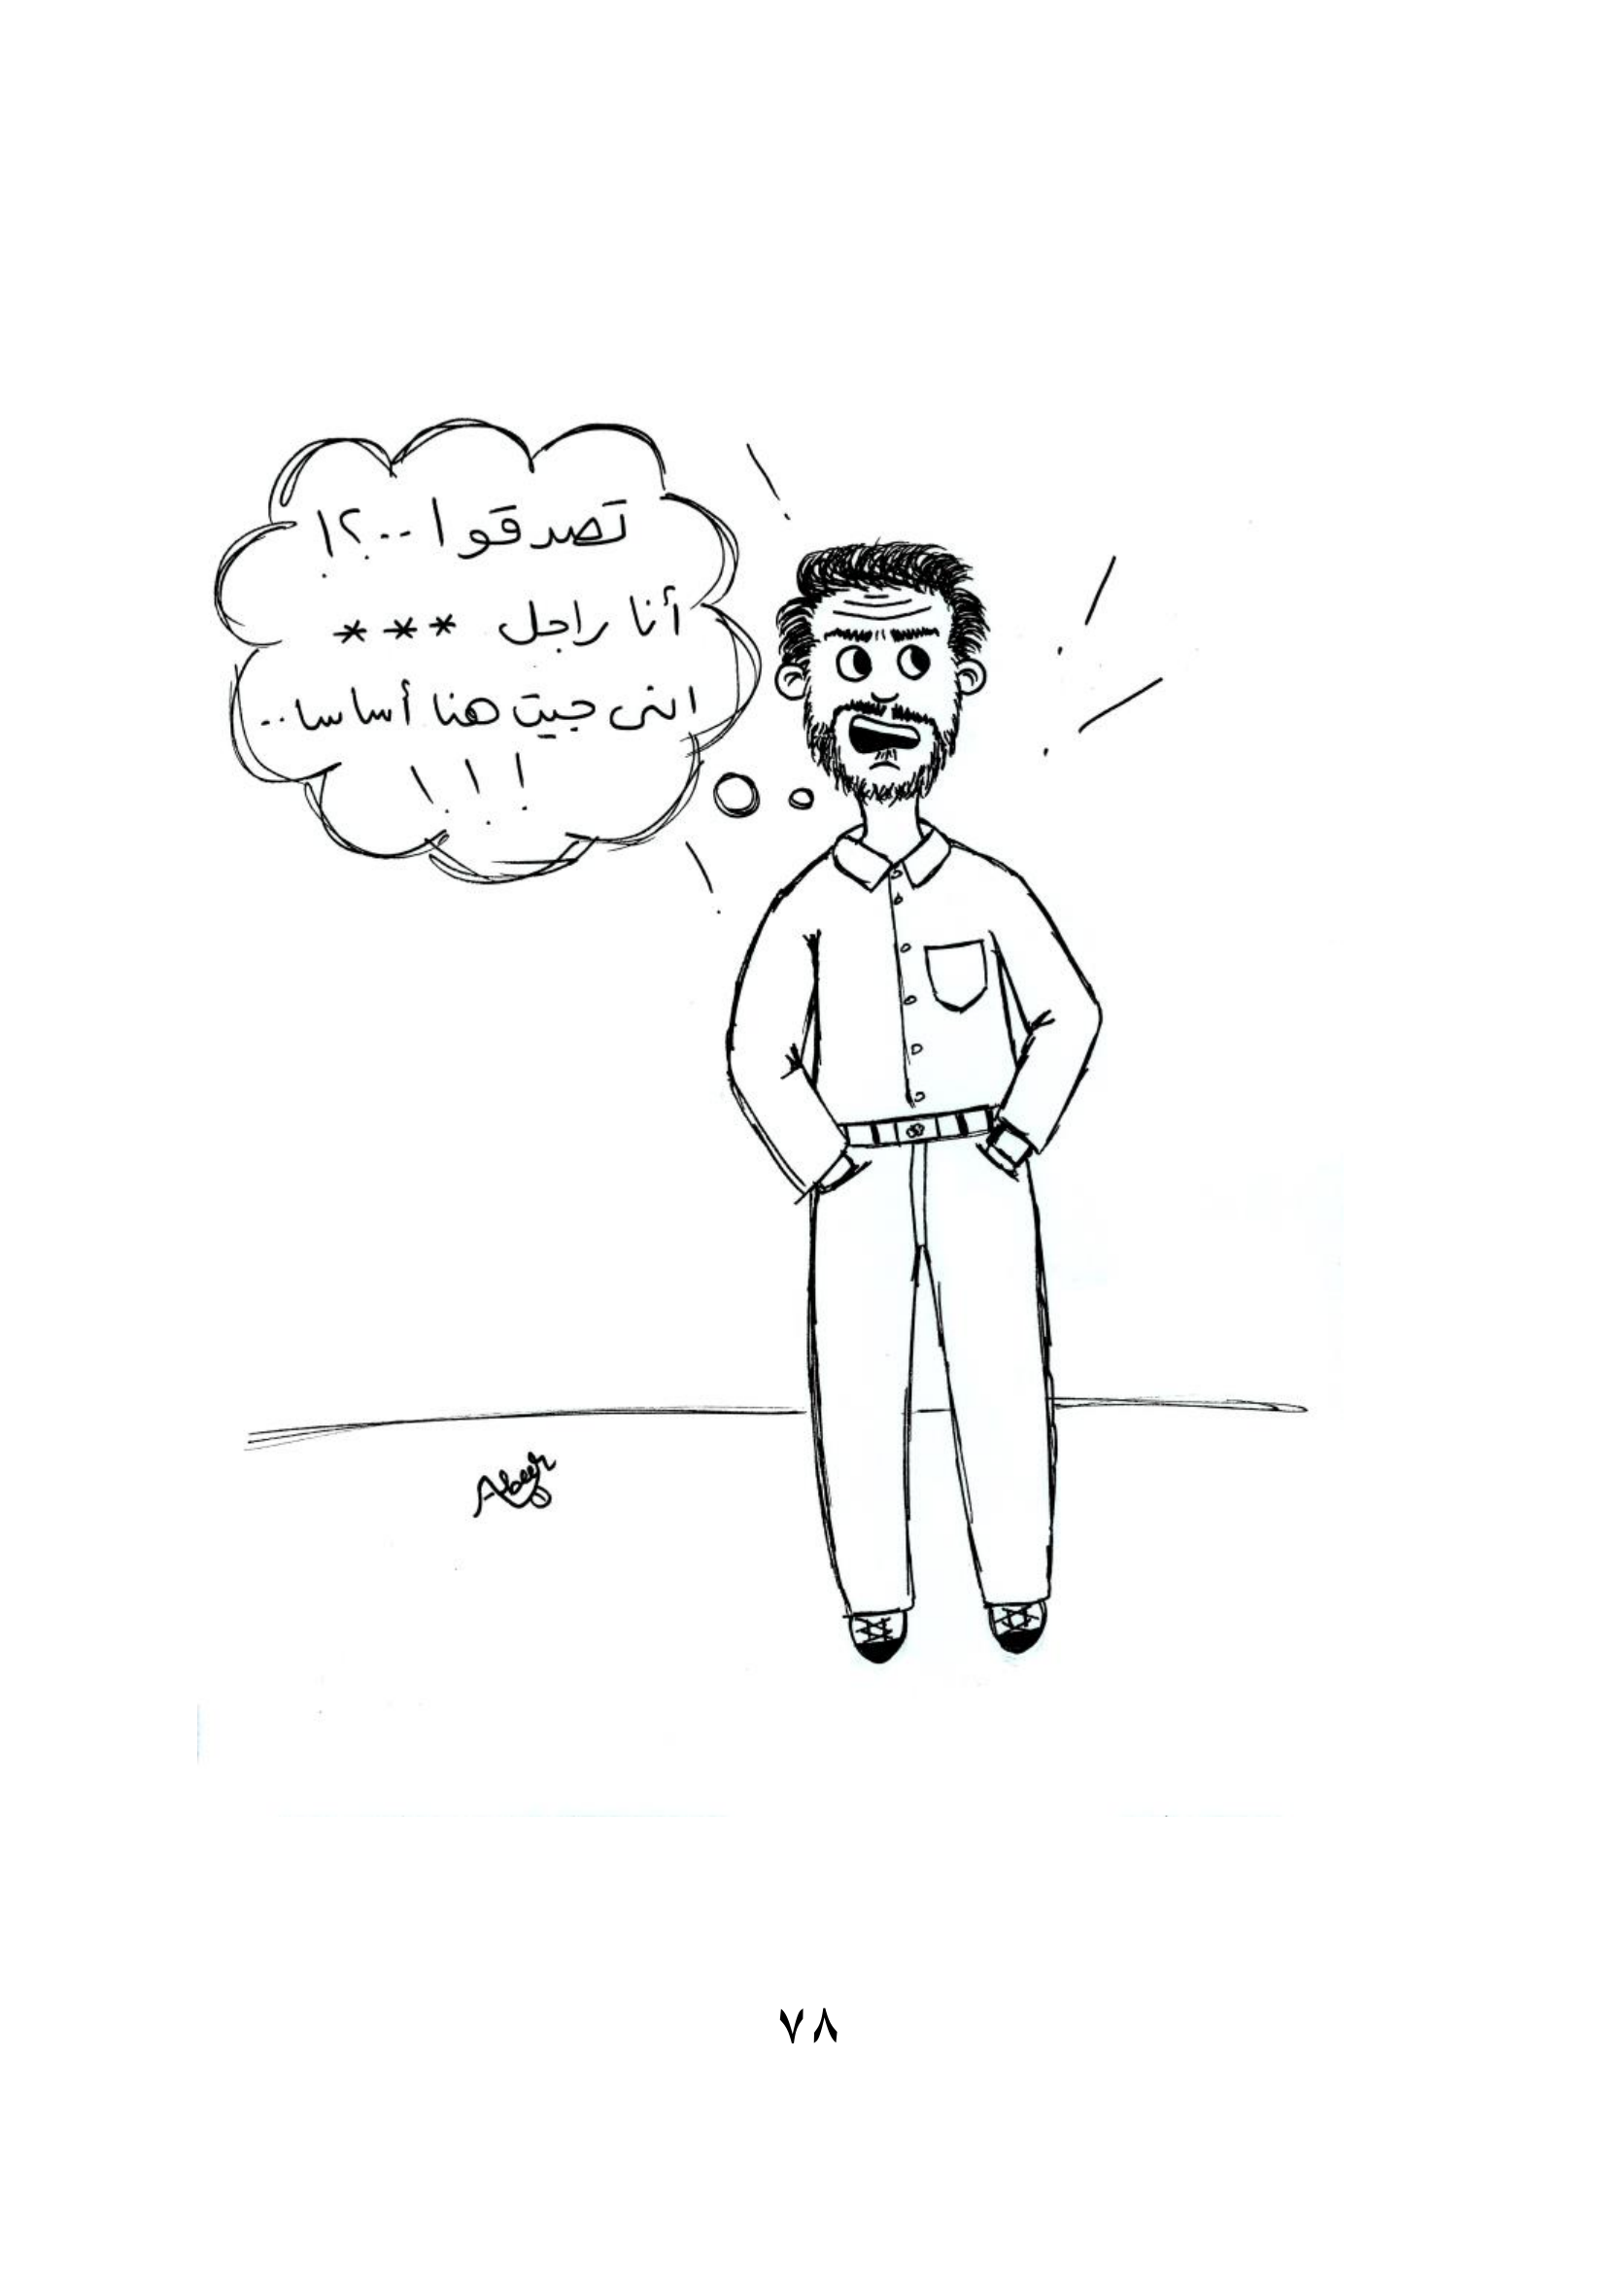 تصدقوا..؟!
أنا راجل ***
انى جيت هنا أساسا..
!!!
Abeer
٧٨